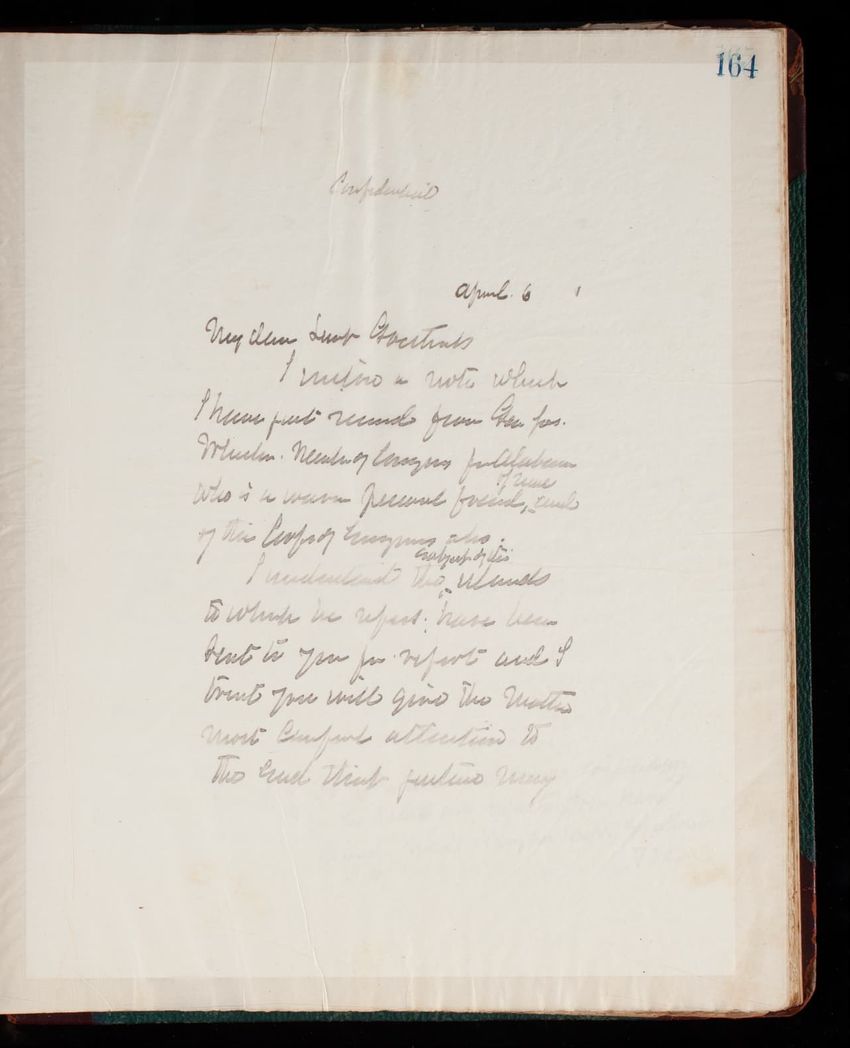 164
Confidential
April 6
My dear
I enclose a note which
I have just received from Gen Jos.
Wheeler. Member of Congress for Alabama
of mine
who is a warm personal friend, and
of the Corps of Engineers also.
subject of the
I understand the islands
to which he refers. have been
sent to you for report and I
trust you will give the matter
most careful attention to
the end that justice may